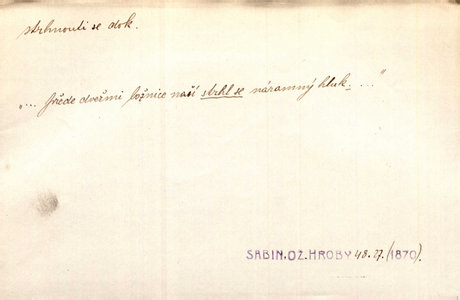 strhnouti se dok.
„... přede dveřmi ložnice naší strhl se náramný hluk. ..."
SABIN. OŽ. HROBY 48. 27. (1870).